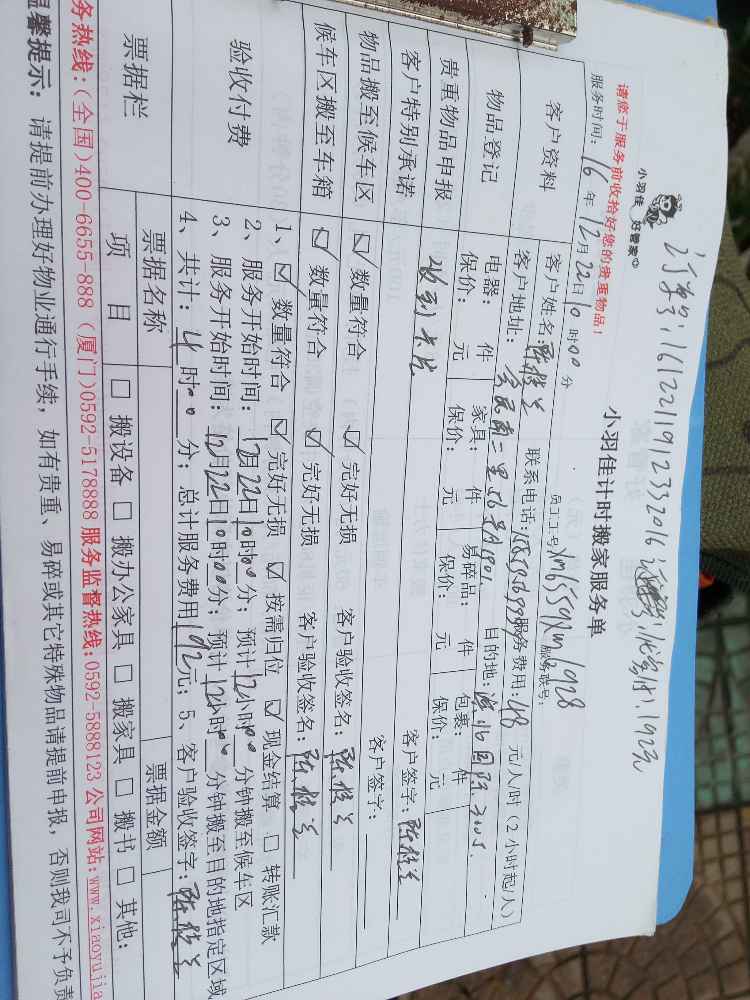 订单号:1612211912332016
1928
小羽佳 好管家
小羽佳计时搬家服务单
请您于服务前收拾好您的贵重物品!
服务时间: 16 年 12 月 22 日 10 时 00 分
员工工号: 服务联号:
客户资料
客户姓名: 联系电话: 服务费用: 48 元/人/时(2小时起/人)
客户地址: 目的地: 国际
物品登记
电器: 件 家具: 件 易碎品: 件 包裹: 件
保价: 元 保价: 元 保价: 元 保价: 元
贵重物品申报
客户签字:
客户特别承诺
收到卡片
客户签字:
物品搬至候车区
☑ 数量符合 ☑ 完好无损 客户验收签名:
候车区搬至车箱
☑ 数量符合 ☑ 完好无损 客户验收签名:
验收付费
1、☑ 数量符合 ☑ 完好无损 ☑ 按需归位 ☑ 现金结算 □ 转账汇款
2、服务开始时间: 12月22日10时00分; 预计12小时00分钟搬至候车区
3、服务开始时间: 12月22日10时00分; 预计12小时00分钟搬至目的地指定区域
4、共计: 4 时00分; 总计服务费用192元; 5、客户验收签字:
票据栏
票据名称 票据金额
项 目 □ 搬设备 □ 搬办公家具 □ 搬家具 □ 搬书 □ 其他:
务热线:(全国)400-6655-888 (厦门)0592-5178888 服务监督热线:0592-5888123 公司网站:www.xiaoyujia
温馨提示: 请提前办理好物业通行手续, 如有贵重、易碎或其它特殊物品请提前申报, 否则我司不予负责